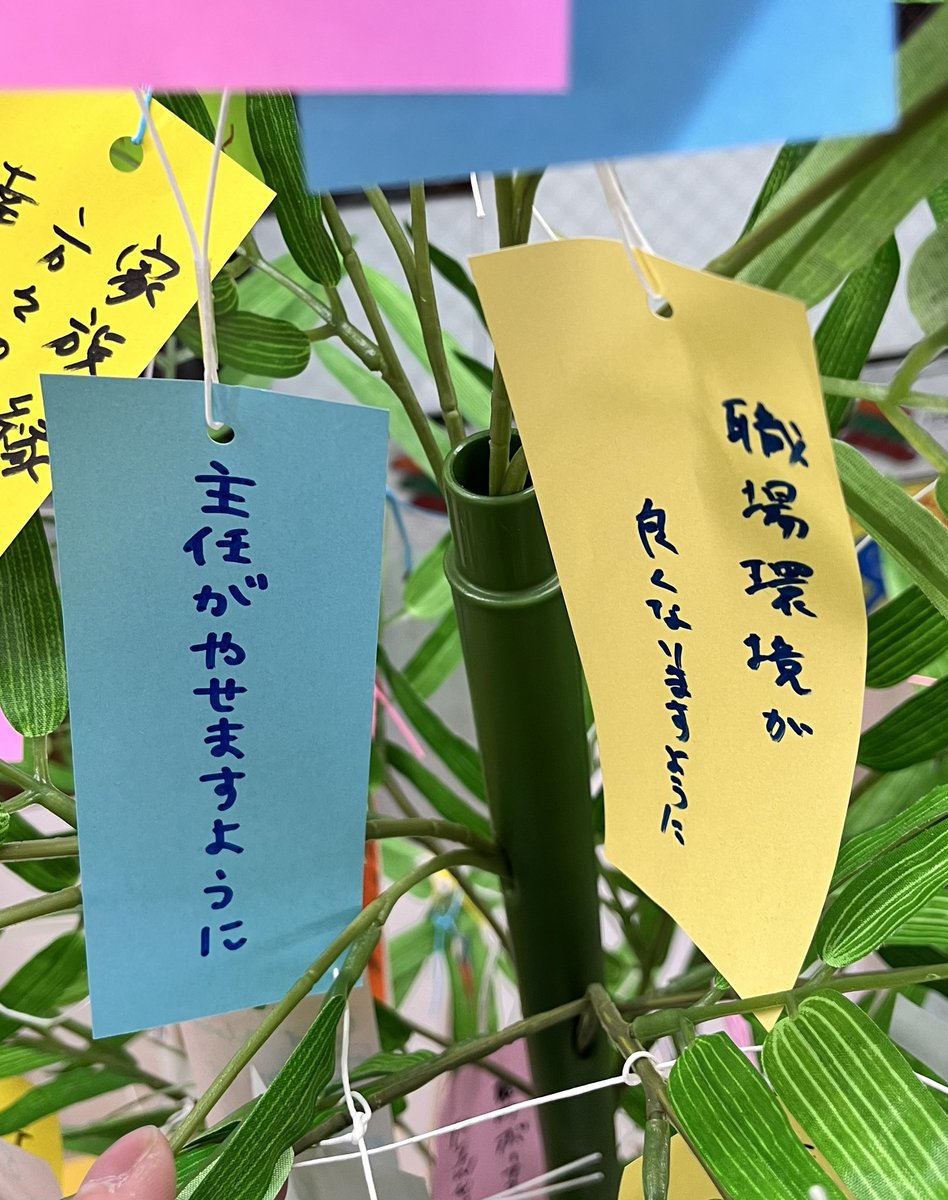 職場環境が
良くないますように
主任がやせますように
家族